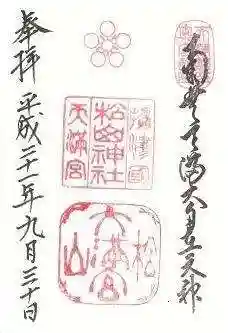 南無天満大自在天神
攝津國
松山神社
天満宮
松
山
奉拝 平成二十一年九月三十日